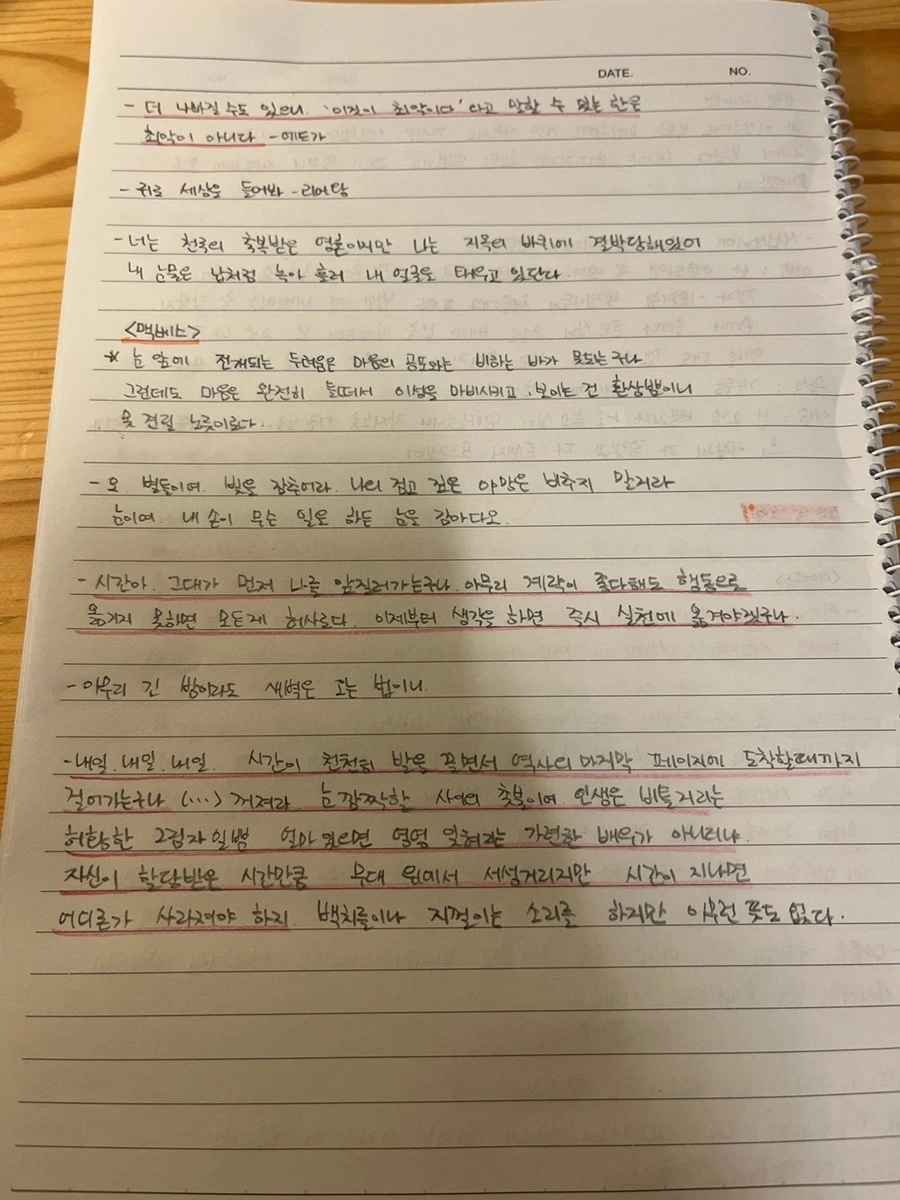 DATE. NO.
- 더 나빠질 수도 있으니. '이것이 최악이다' 라고 말할 수 있는 한은
최악이 아니다 - 에드가
- 귀로 세상을 들어봐 - 리어왕
- 너는 천국의 축복받은 영혼이지만 나는 지옥의 바퀴에 결박당해있어
내 눈물은 납처럼 녹아 흘러 내 얼굴을 태우고 있단다
<맥베스>
* 눈 앞에 전개되는 두려움은 마음의 공포와는 비하는 바가 못되는구나
그런데도 마음은 완전히 들떠서 이성을 마비시키고, 보이는 건 환상뿐이니
못 견딜 노릇이로다.
- 오. 별들이여. 빛을 감추어라. 나의 검고 깊은 야망은 비추지 말거라
눈이여. 내 손이 무슨 일을 하든 눈을 감아다오.
- 시간아. 그대가 먼저 나를 앞질러가는구나. 아무리 계략이 좋다해도 행동으로
옮기지 못하면 모든게 허사로다. 이제부터 생각을 하면 즉시 실천에 옮겨야겠구나.
- 아무리 긴 밤이라도 새벽은 오는 법이니.
- 내일. 내일. 내일. 시간이 천천히 발을 끌면서 역사의 마지막 페이지에 도착할때까지
걸어가는구나 (...) 꺼져라 눈 깜짝할 사이의 촛불이여. 인생은 비틀거리는
허황한 그림자일뿐 얼마 있으면 영영 잊혀지는 가련한 배우가 아니더냐.
자신이 할당받은 시간만큼 무대 위에서 서성거리지만 시간이 지나면
어디론가 사라져야 하지. 백치들이나 지껄이는 소리를 하지만 아무런 뜻도 없다.